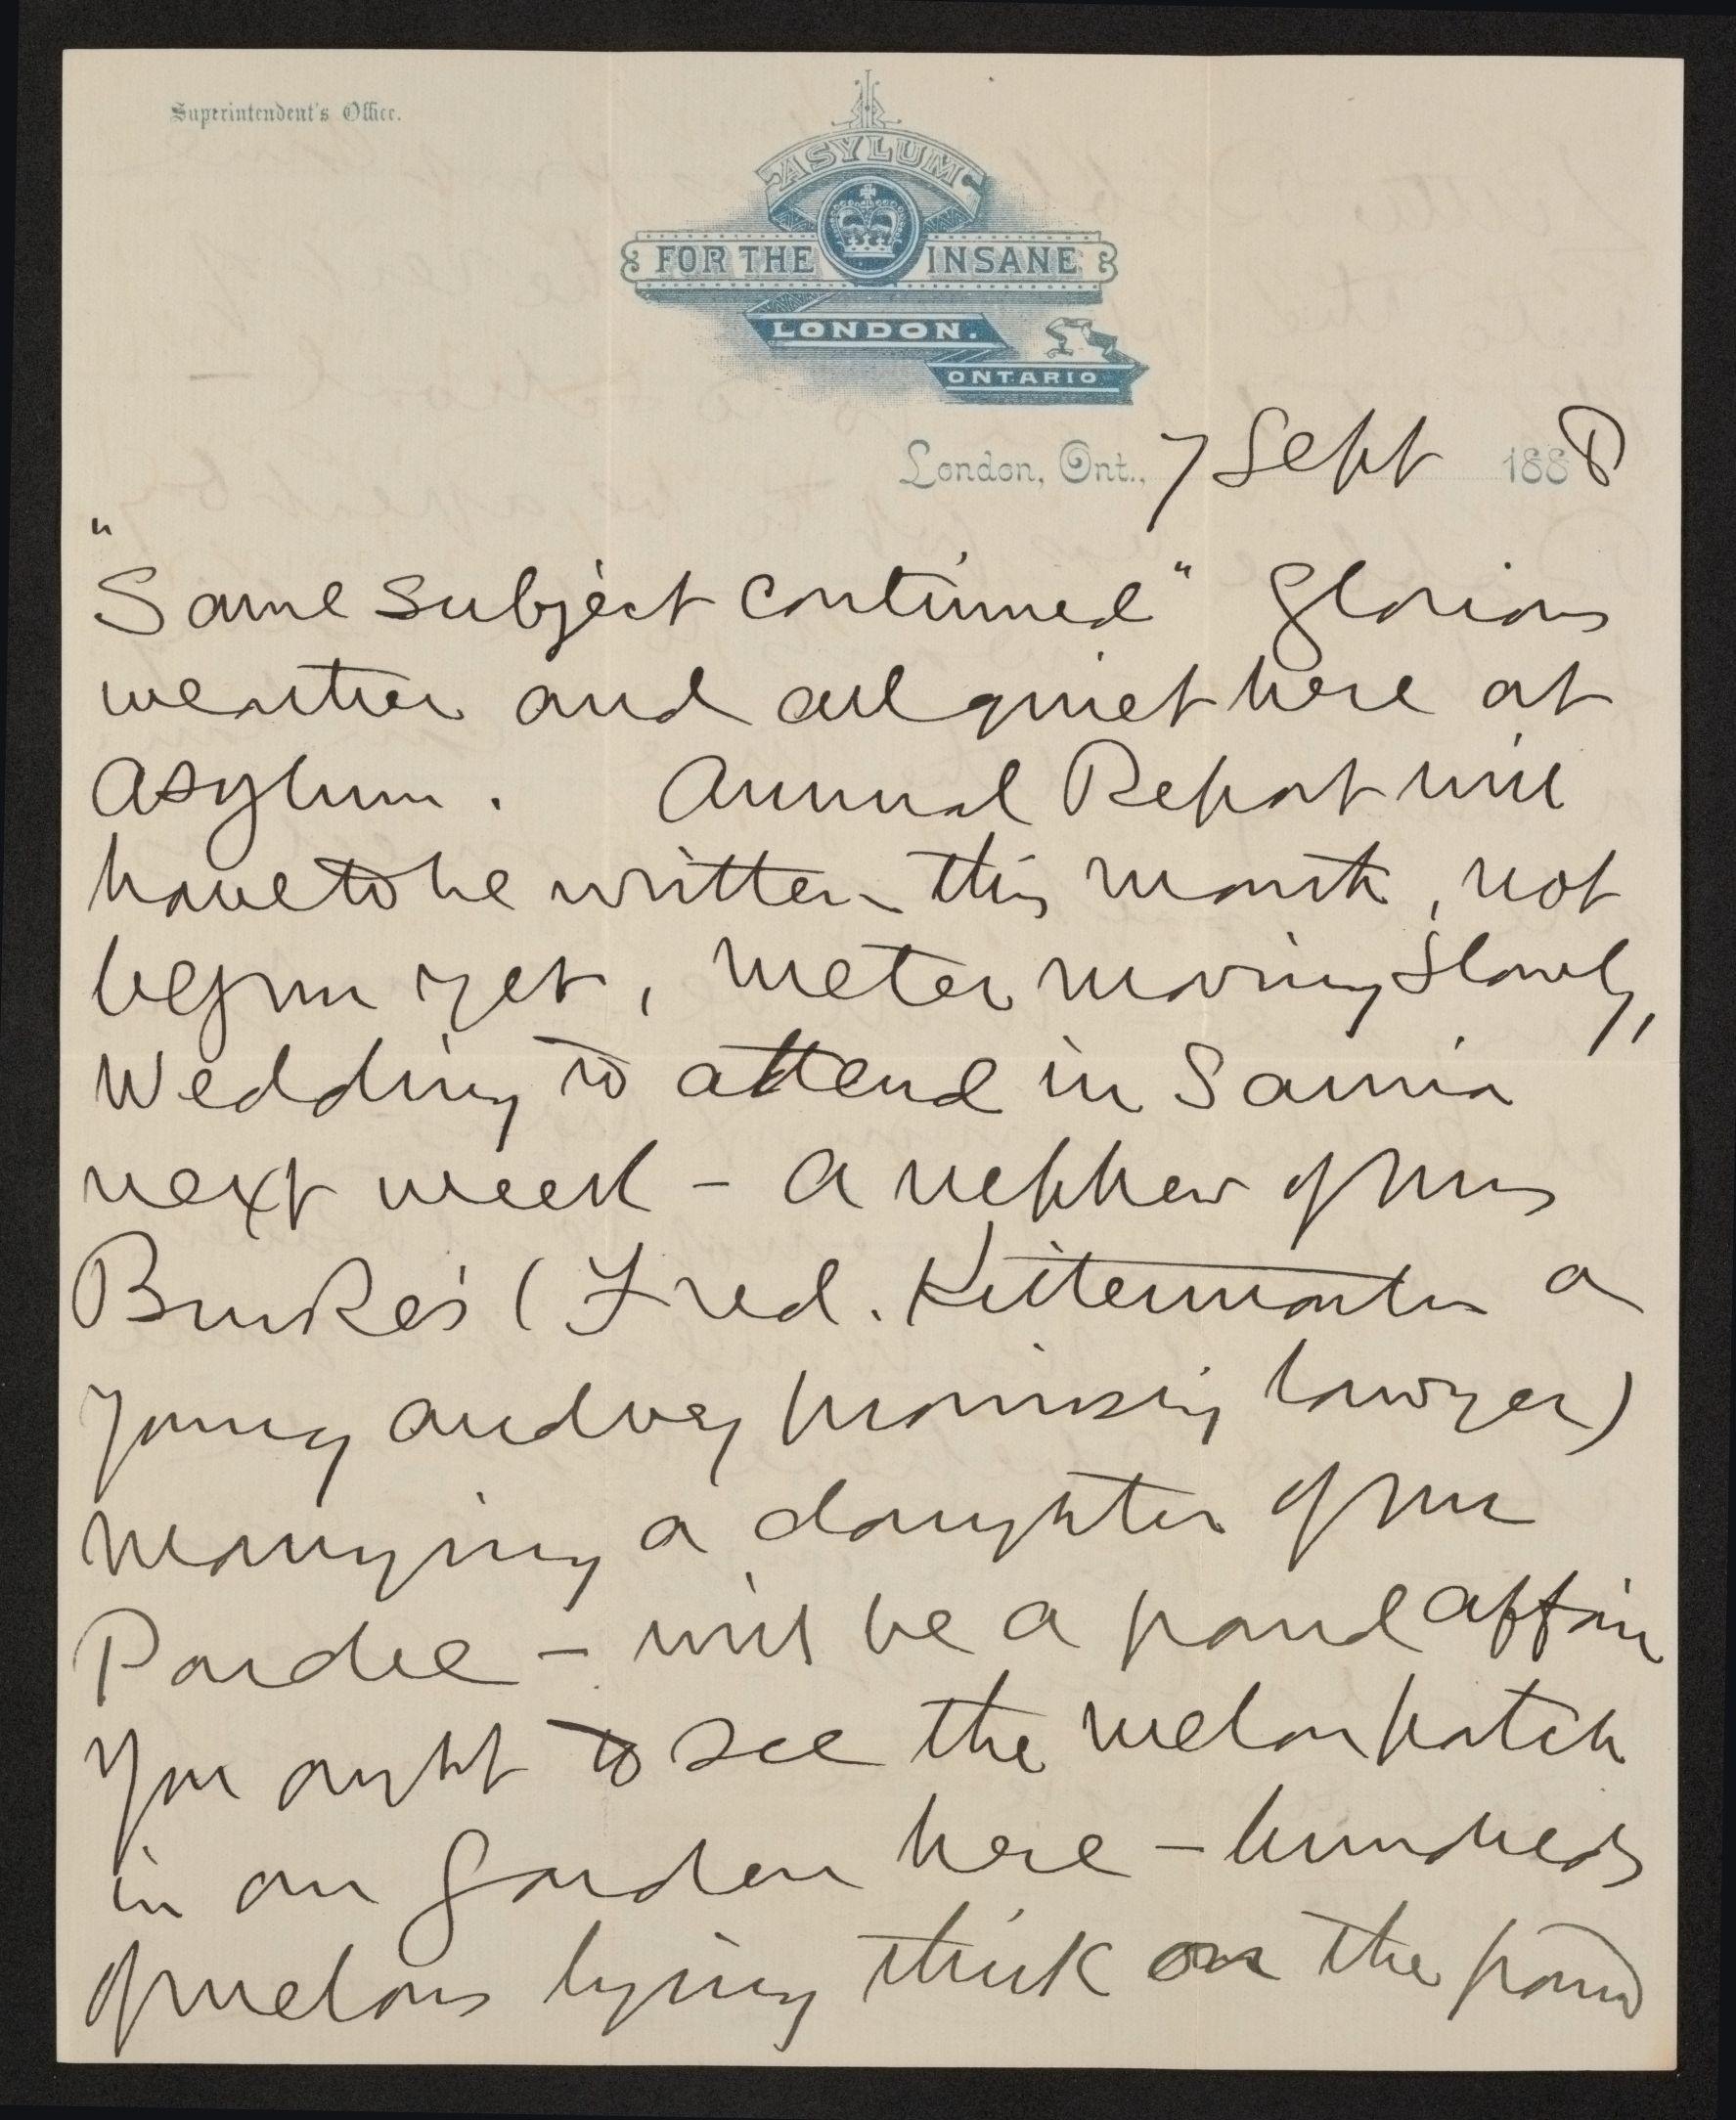 Superintendent's Office.
ASYLUM
FOR THE INSANE
LONDON.
ONTARIO
London, Ont., 7 Sept 1888
"Same subject continued" Glorious
weather and all quiet here at
Asylum. Annual Report will
have to be written this month, not
begun yet, meter moving slowly,
Wedding to attend in Sarnia
next week – a nephew of Mrs
Bucke's (Fred. Kittermaster a
young and very promising lawyer)
marrying a daughter of Mr
Pardee – will be a grand affair
You ought to see the melon patch
in our garden here – hundreds
of melons lying thick on the ground